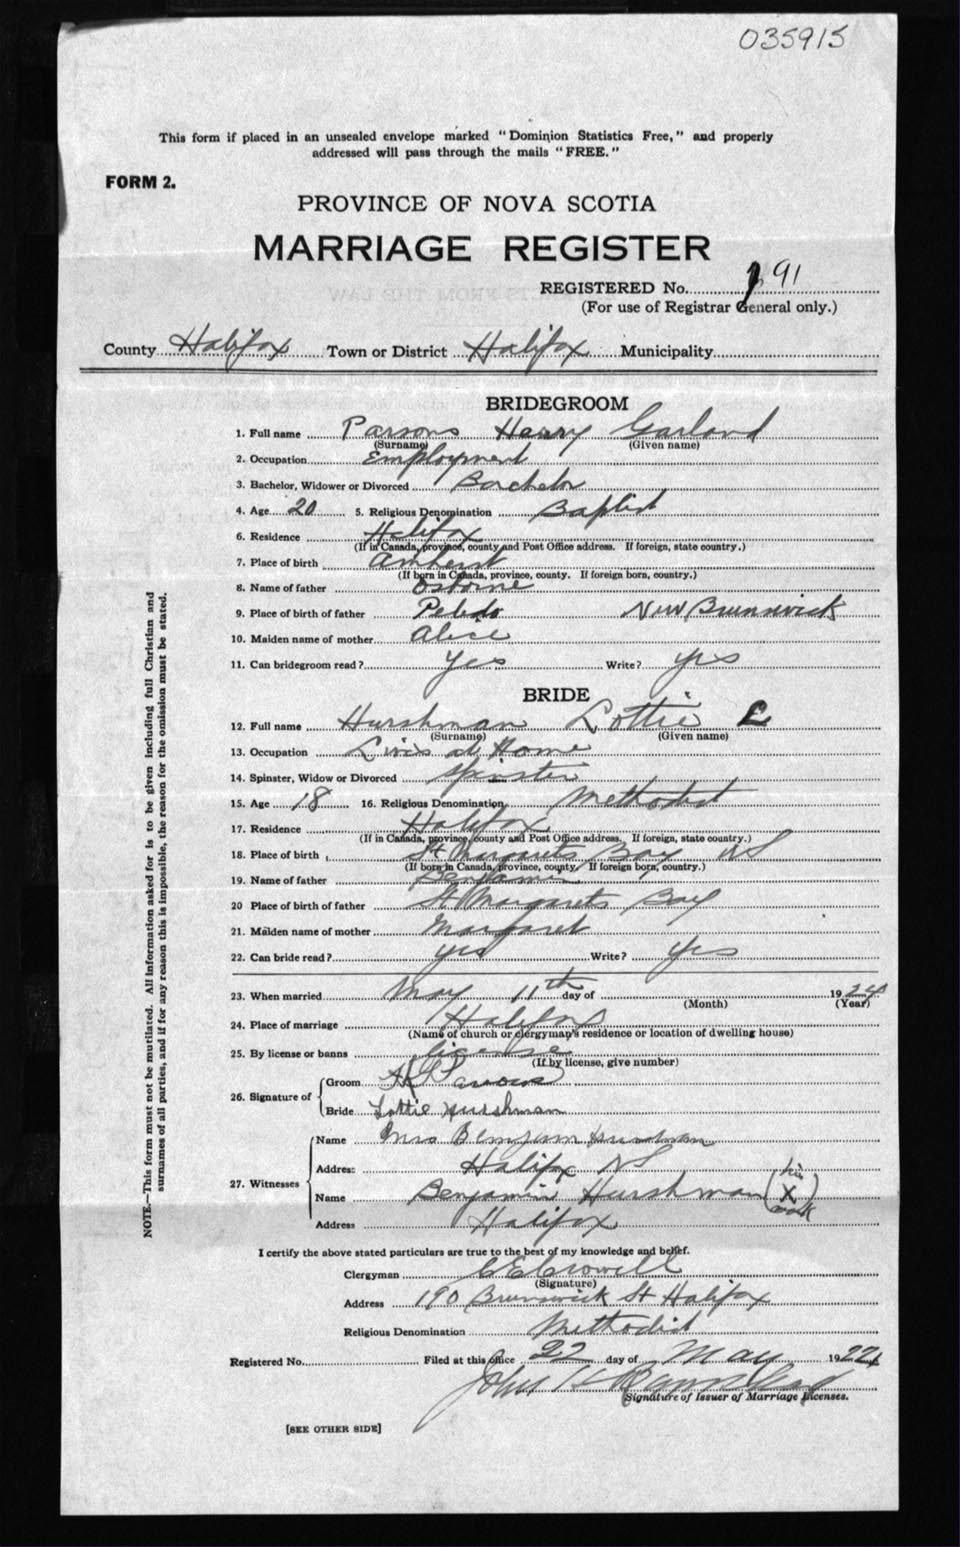 035915
This form if placed in an unsealed envelope marked "Dominion Statistics Free," and properly
addressed will pass through the mails "FREE."
FORM 2.
PROVINCE OF NOVA SCOTIA
MARRIAGE REGISTER
REGISTERED No. 91
(For use of Registrar General only.)
County Halifax Town or District Halifax Municipality
BRIDEGROOM
1. Full name Parsons Harry Garland
(Surname) (Given name)
2. Occupation Employment
3. Bachelor, Widower or Divorced Bachelor
4. Age 20 5. Religious Denomination Baptist
6. Residence Halifax
(If in Canada, province, county and Post Office address. If foreign, state country.)
7. Place of birth Amherst
(If born in Canada, province, county. If foreign born, country.)
8. Name of father Osborne
9. Place of birth of father New Brunswick
10. Maiden name of mother Alice
11. Can bridegroom read? Yes Write? yes
BRIDE
12. Full name Hurshman Lottie E
(Surname) (Given name)
13. Occupation Lives at Home
14. Spinster, Widow or Divorced Spinster
15. Age 18 16. Religious Denomination Methodist
17. Residence Halifax
(If in Canada, province, county and Post Office address. If foreign, state country.)
18. Place of birth St Margarets Bay NS
(If born in Canada, province, county. If foreign born, country.)
19. Name of father Benjamin
20 Place of birth of father St Margarets Bay
21. Maiden name of mother Margaret
22. Can bride read? yes Write? Yes
23. When married May 11th day of 1924
(Month) (Year)
24. Place of marriage Halifax
(Name of church or clergyman's residence or location of dwelling house)
25. By license or banns license
(If by license, give number)
26. Signature of Groom H G Parsons
Bride Lottie Hurshman
27. Witnesses Name Mrs Benjamin Hurshman
Address Halifax NS
Name Benjamin Hurshman (his X mark)
Address Halifax
I certify the above stated particulars are true to the best of my knowledge and belief.
Clergyman C E Crowell
(Signature)
Address 190 Brunswick St Halifax
Religious Denomination Methodist
Registered No. Filed at this office 22 day of May 1924
John H
Signature of Issuer of Marriage Licenses.
[SEE OTHER SIDE]
NOTE.—This form must not be mutilated. All information asked for is to be given including full Christian and
surnames of all parties, and if for any reason this is impossible, the reason for the omission must be stated.